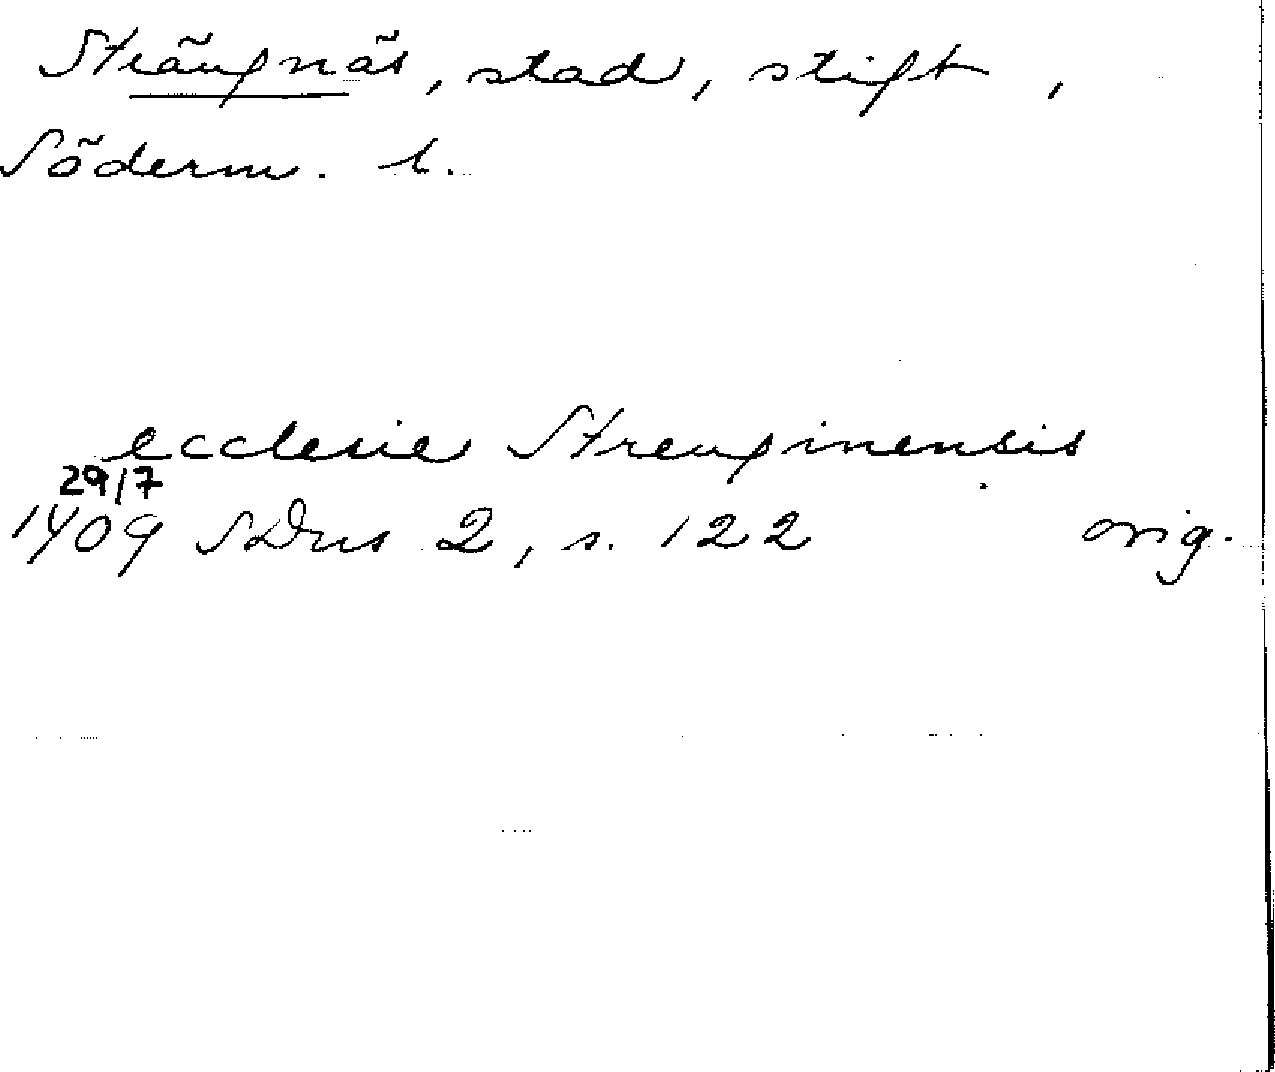 Strängnäs, stad, stift,
Söderm. l.
ecclesie Strenginensis
29/7
1409 SDns 2, s. 122 orig.